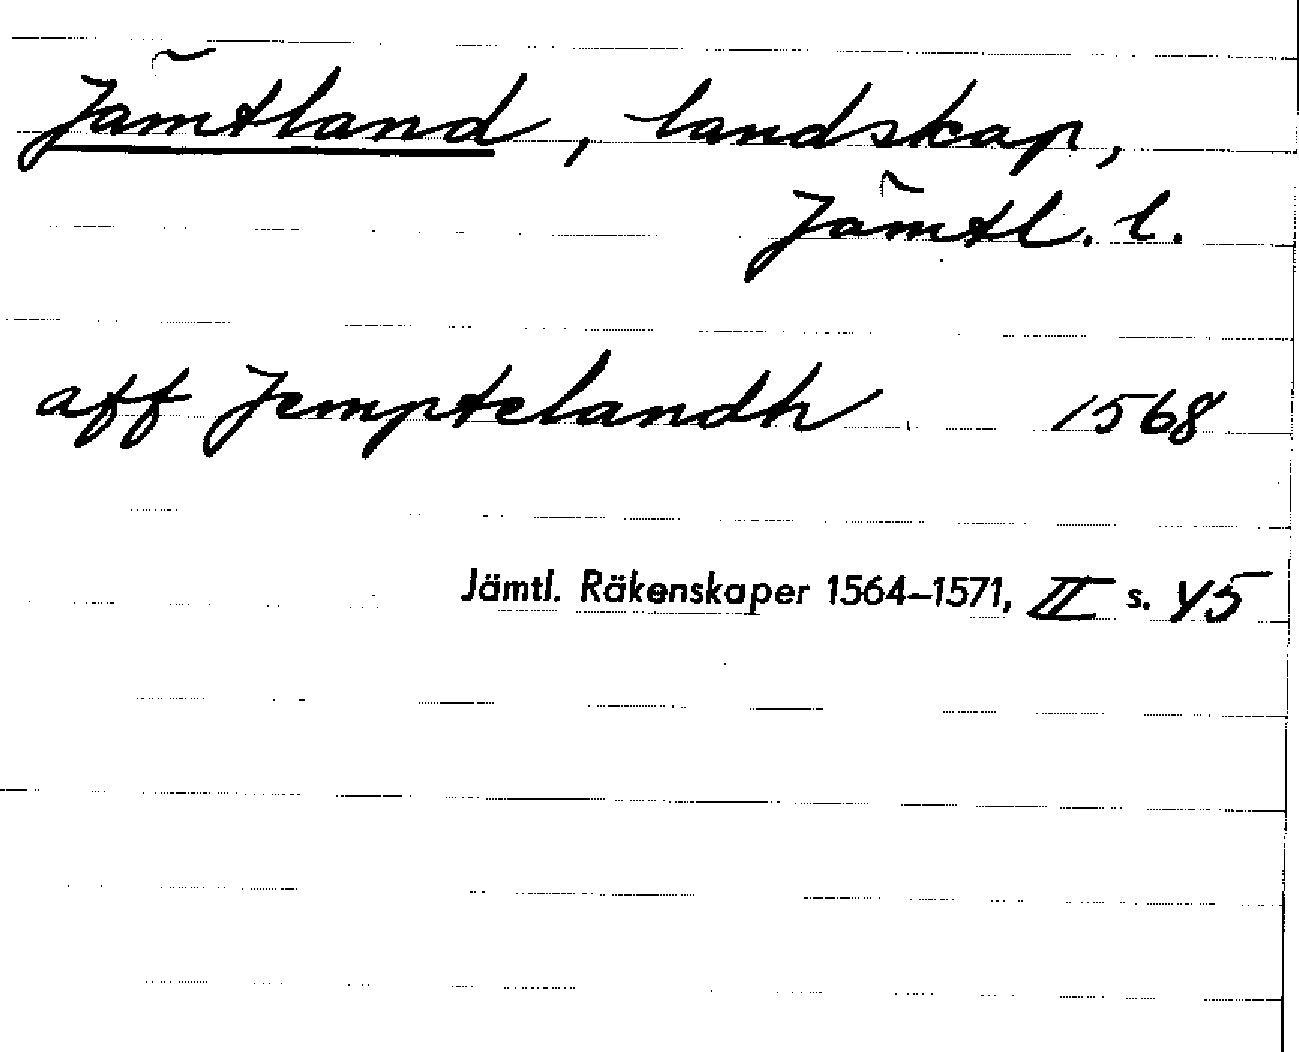 Jämtland, landskap,
Jämtl. l.
aff Jemptelandh 1568
Jämtl. Räkenskaper 1564–1571, II s. 45